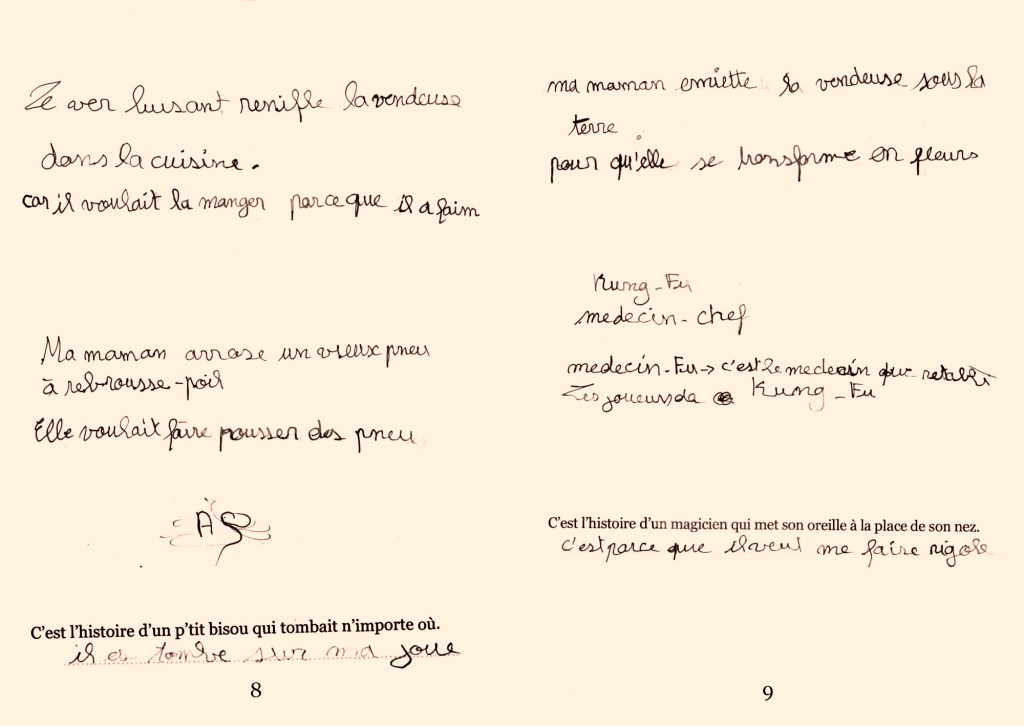 Le ver luisant renifle la vendeuse
dans la cuisine.
car il voulait la manger parce que il a faim
Ma maman arrose un vieux pneu
à rebrousse-poil
Elle voulait faire pousser des pneu
AS
C'est l'histoire d'un p'tit bisou qui tombait n'importe où.
il a tombe sur ma joue
8
ma maman emiette la vendeuse sous la
terre.
pour qu'elle se transforme en fleurs
Kung-Fu
medecin-chef
medecin-Fu → c'est le medecin que retabli
Les joueurs da Kung-Fu
C'est l'histoire d'un magicien qui met son oreille à la place de son nez.
c'est parce que il veut me faire rigole
9